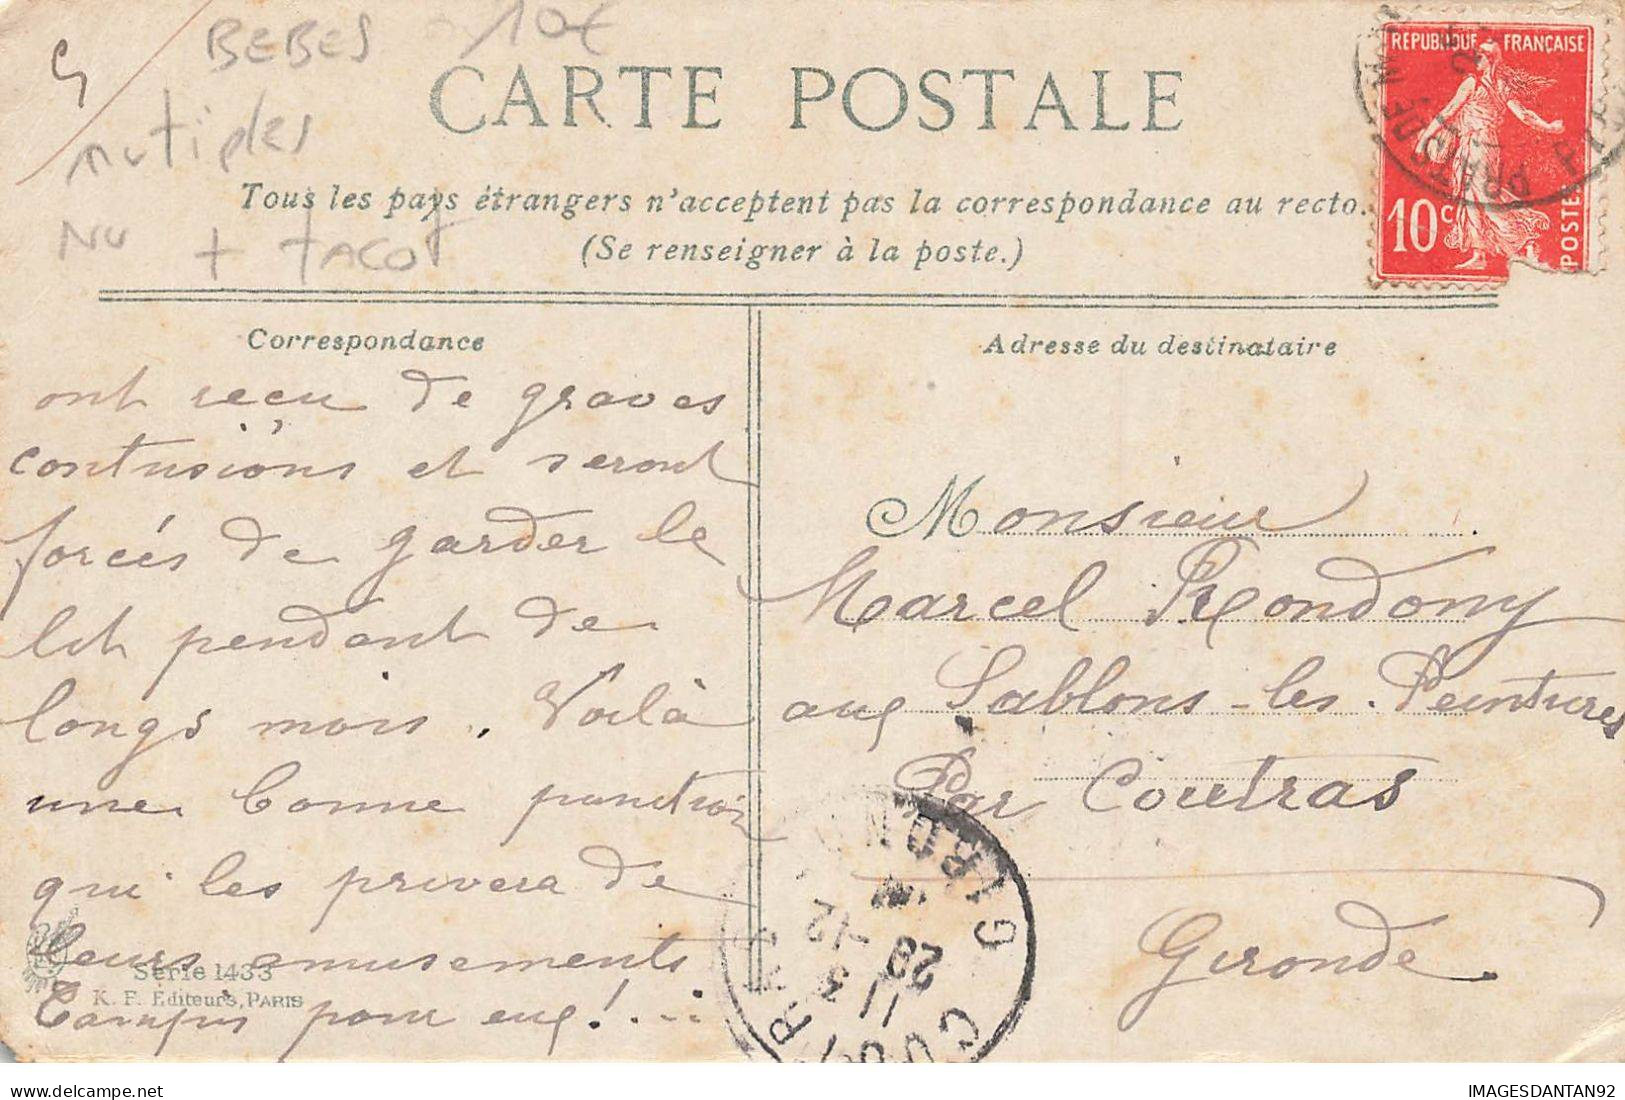 BEBES 10€
mutiples
NU + TACOT
CARTE POSTALE
Tous les pays étrangers n'acceptent pas la correspondance au recto.
(Se renseigner à la poste.)
REPUBLIQUE FRANÇAISE
10c
POSTES
Correspondance
ont reçu de graves
contusions et seront
forcés de garder le
lit pendant de
longs mois. Voilà
une bonne punition
qui les privera de
leurs amusements
Tampis pour eux!...
Série 1433
K. F. Editeurs, PARIS
Adresse du destinataire
Monsieur
Marcel Rondony
aux Sablons-les-Peintures
Par Coutras
Gironde
COUTRAS
GIRONDE
29 -12
11
IMAGESDANTAN92